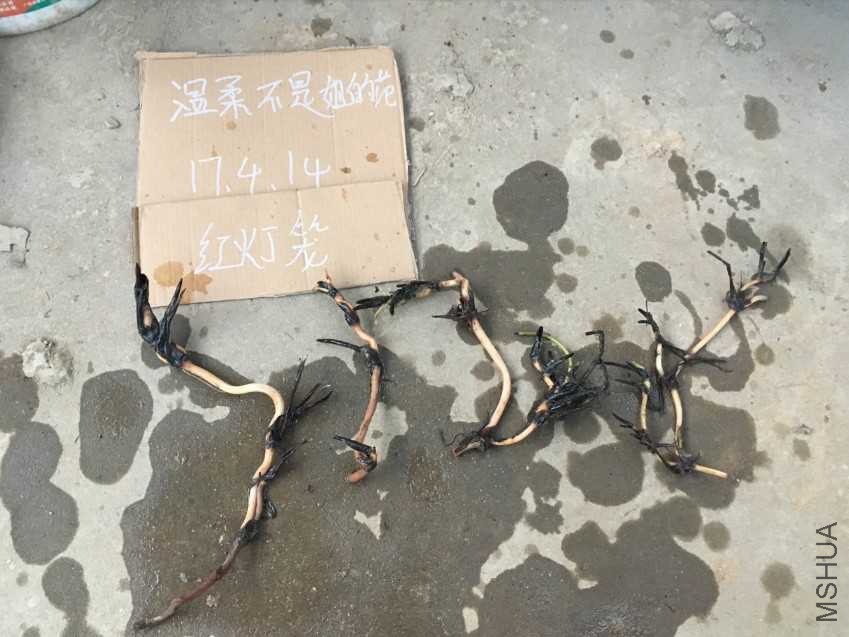 温柔不是姐的范
17.4.14
红灯笼
MSHUA